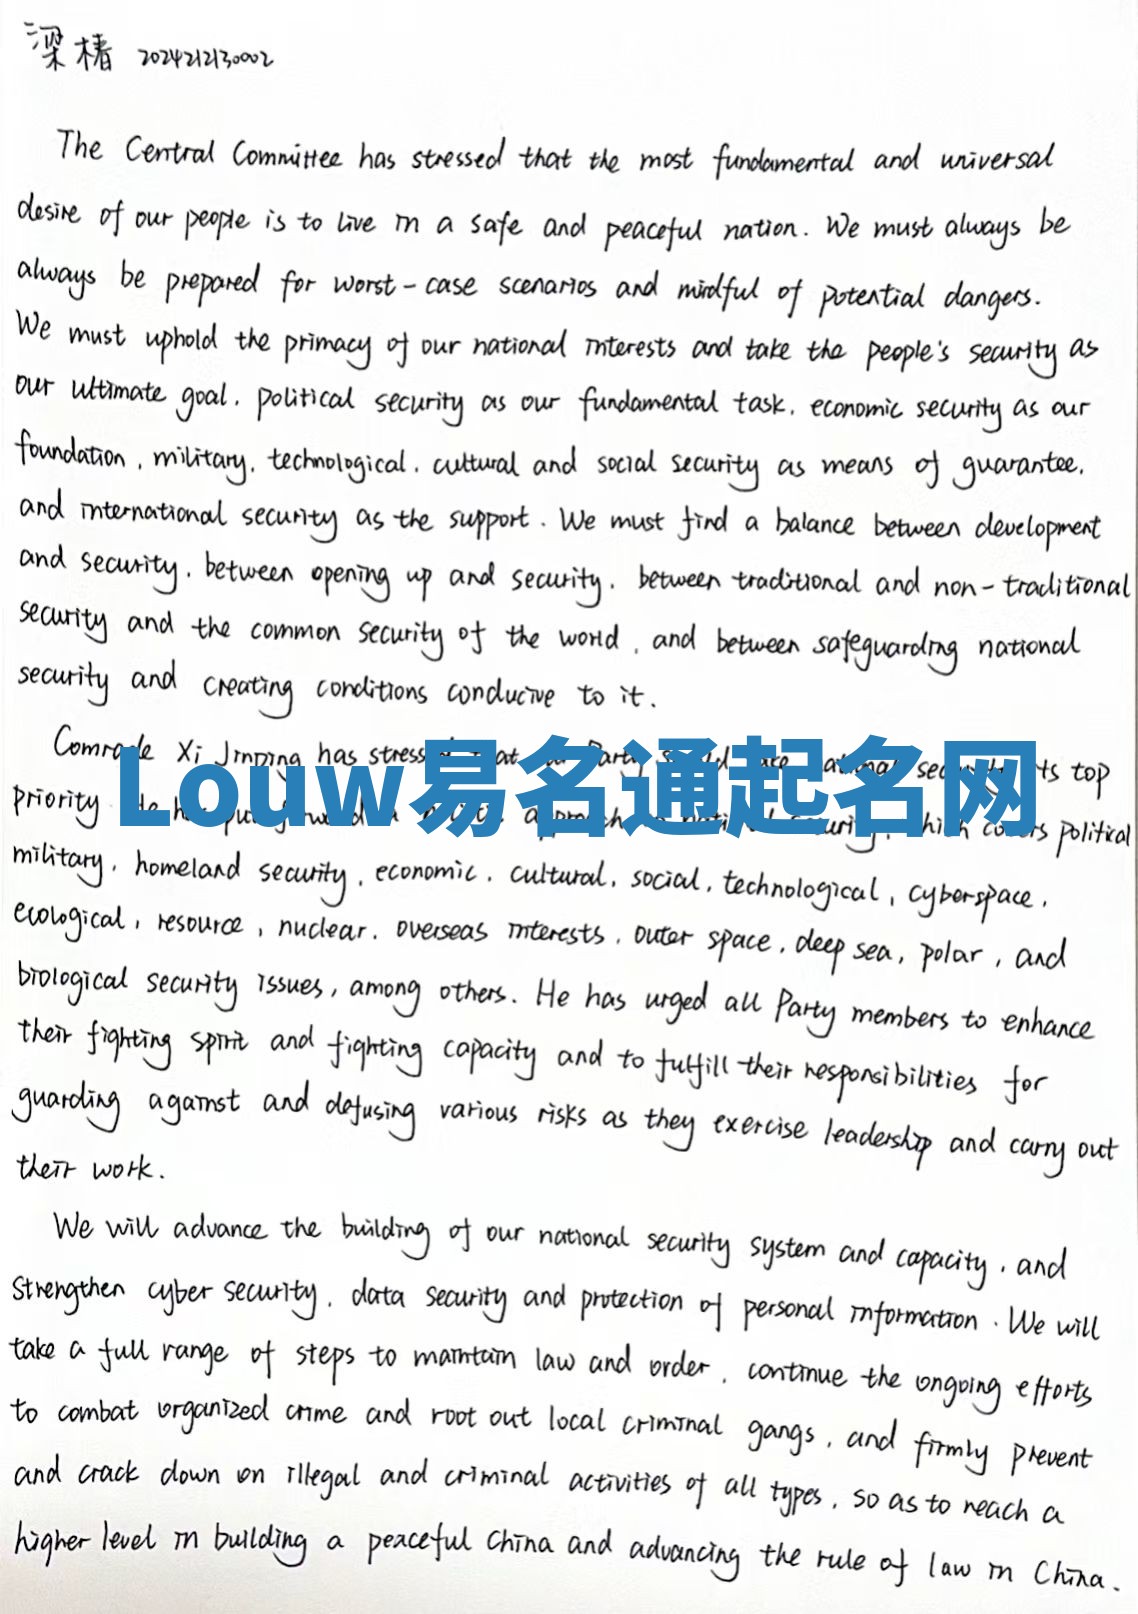 梁椿 2024212130002
The Central Committee has stressed that the most fundamental and universal
desire of our people is to live in a safe and peaceful nation. We must always be
always be prepared for worst-case scenarios and mindful of potential dangers.
We must uphold the primacy of our national interests and take the people's security as
our ultimate goal, political security as our fundamental task, economic security as our
foundation, military, technological, cultural and social security as means of guarantee,
and international security as the support. We must find a balance between development
and security, between opening up and security, between traditional and non-traditional
security and the common security of the world, and between safeguarding national
security and creating conditions conducive to it.
Comrade Xi Jinping has stressed that Party national security its top
Louw易名通起名网
priority He has put forward a approach national security, which covers political
military, homeland security, economic, cultural, social, technological, cyberspace,
ecological, resource, nuclear, overseas interests, outer space, deep sea, polar, and
biological security issues, among others. He has urged all Party members to enhance
their fighting spirit and fighting capacity and to fulfill their responsibilities for
guarding against and defusing various risks as they exercise leadership and carry out
their work.
We will advance the building of our national security system and capacity, and
strengthen cyber security, data security and protection of personal information. We will
take a full range of steps to maintain law and order, continue the ongoing efforts
to combat organized crime and root out local criminal gangs, and firmly prevent
and crack down on illegal and criminal activities of all types, so as to reach a
higher level in building a peaceful China and advancing the rule of law in China.